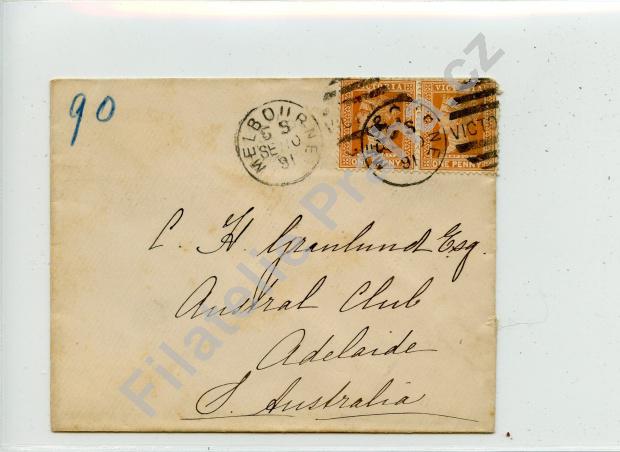 90
MELBOURNE
5 S
SE 10
91
VICTORIA VICTORIA
ONE PENNY ONE PENNY
VICTO
C. H. Granlund Esq.
Austral Club
Adelaide
S. Australia
Filatelie Praha.cz